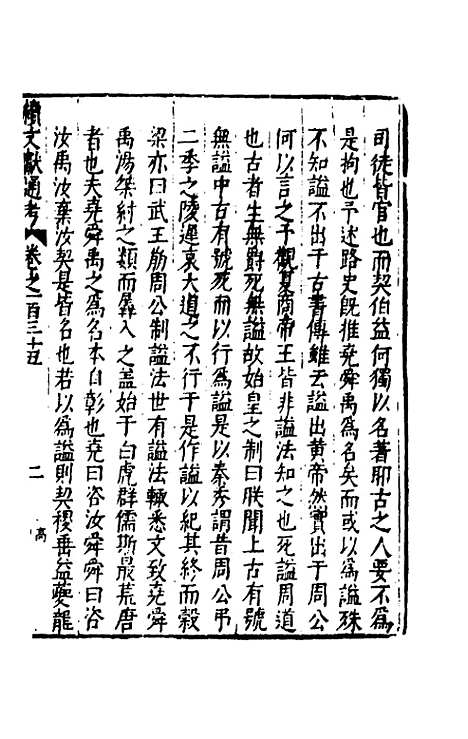 司徒皆官也而契伯益何獨以名著耶古之人要不為
是拘也予述路史既推堯舜禹為名矣而或以為謚殊
不知謚不出于古書傳雖云謚出黃帝然實出于周公
何以言之予觀夏商帝王皆非謚法知之也死謚周道
也古者生無爵死無謚故始皇之制曰朕聞上古有號
無謚中古有號死而以行為謚是以秦秀謂昔周公弔
二季之陵遲哀大道之不行于是作謚以紀其終而穀
梁亦曰武王崩周公制謚法世有謚法輒悉文致堯舜
禹湯桀紂之類而羼入之蓋始于白虎群儒斯最荒唐
者也夫堯舜禹之為名本自彰也堯曰咨汝舜舜曰咨
汝禹汝棄汝契是皆名也若以為謚則契稷垂益夔龍
續文獻通考 卷之一百三十五 二 高